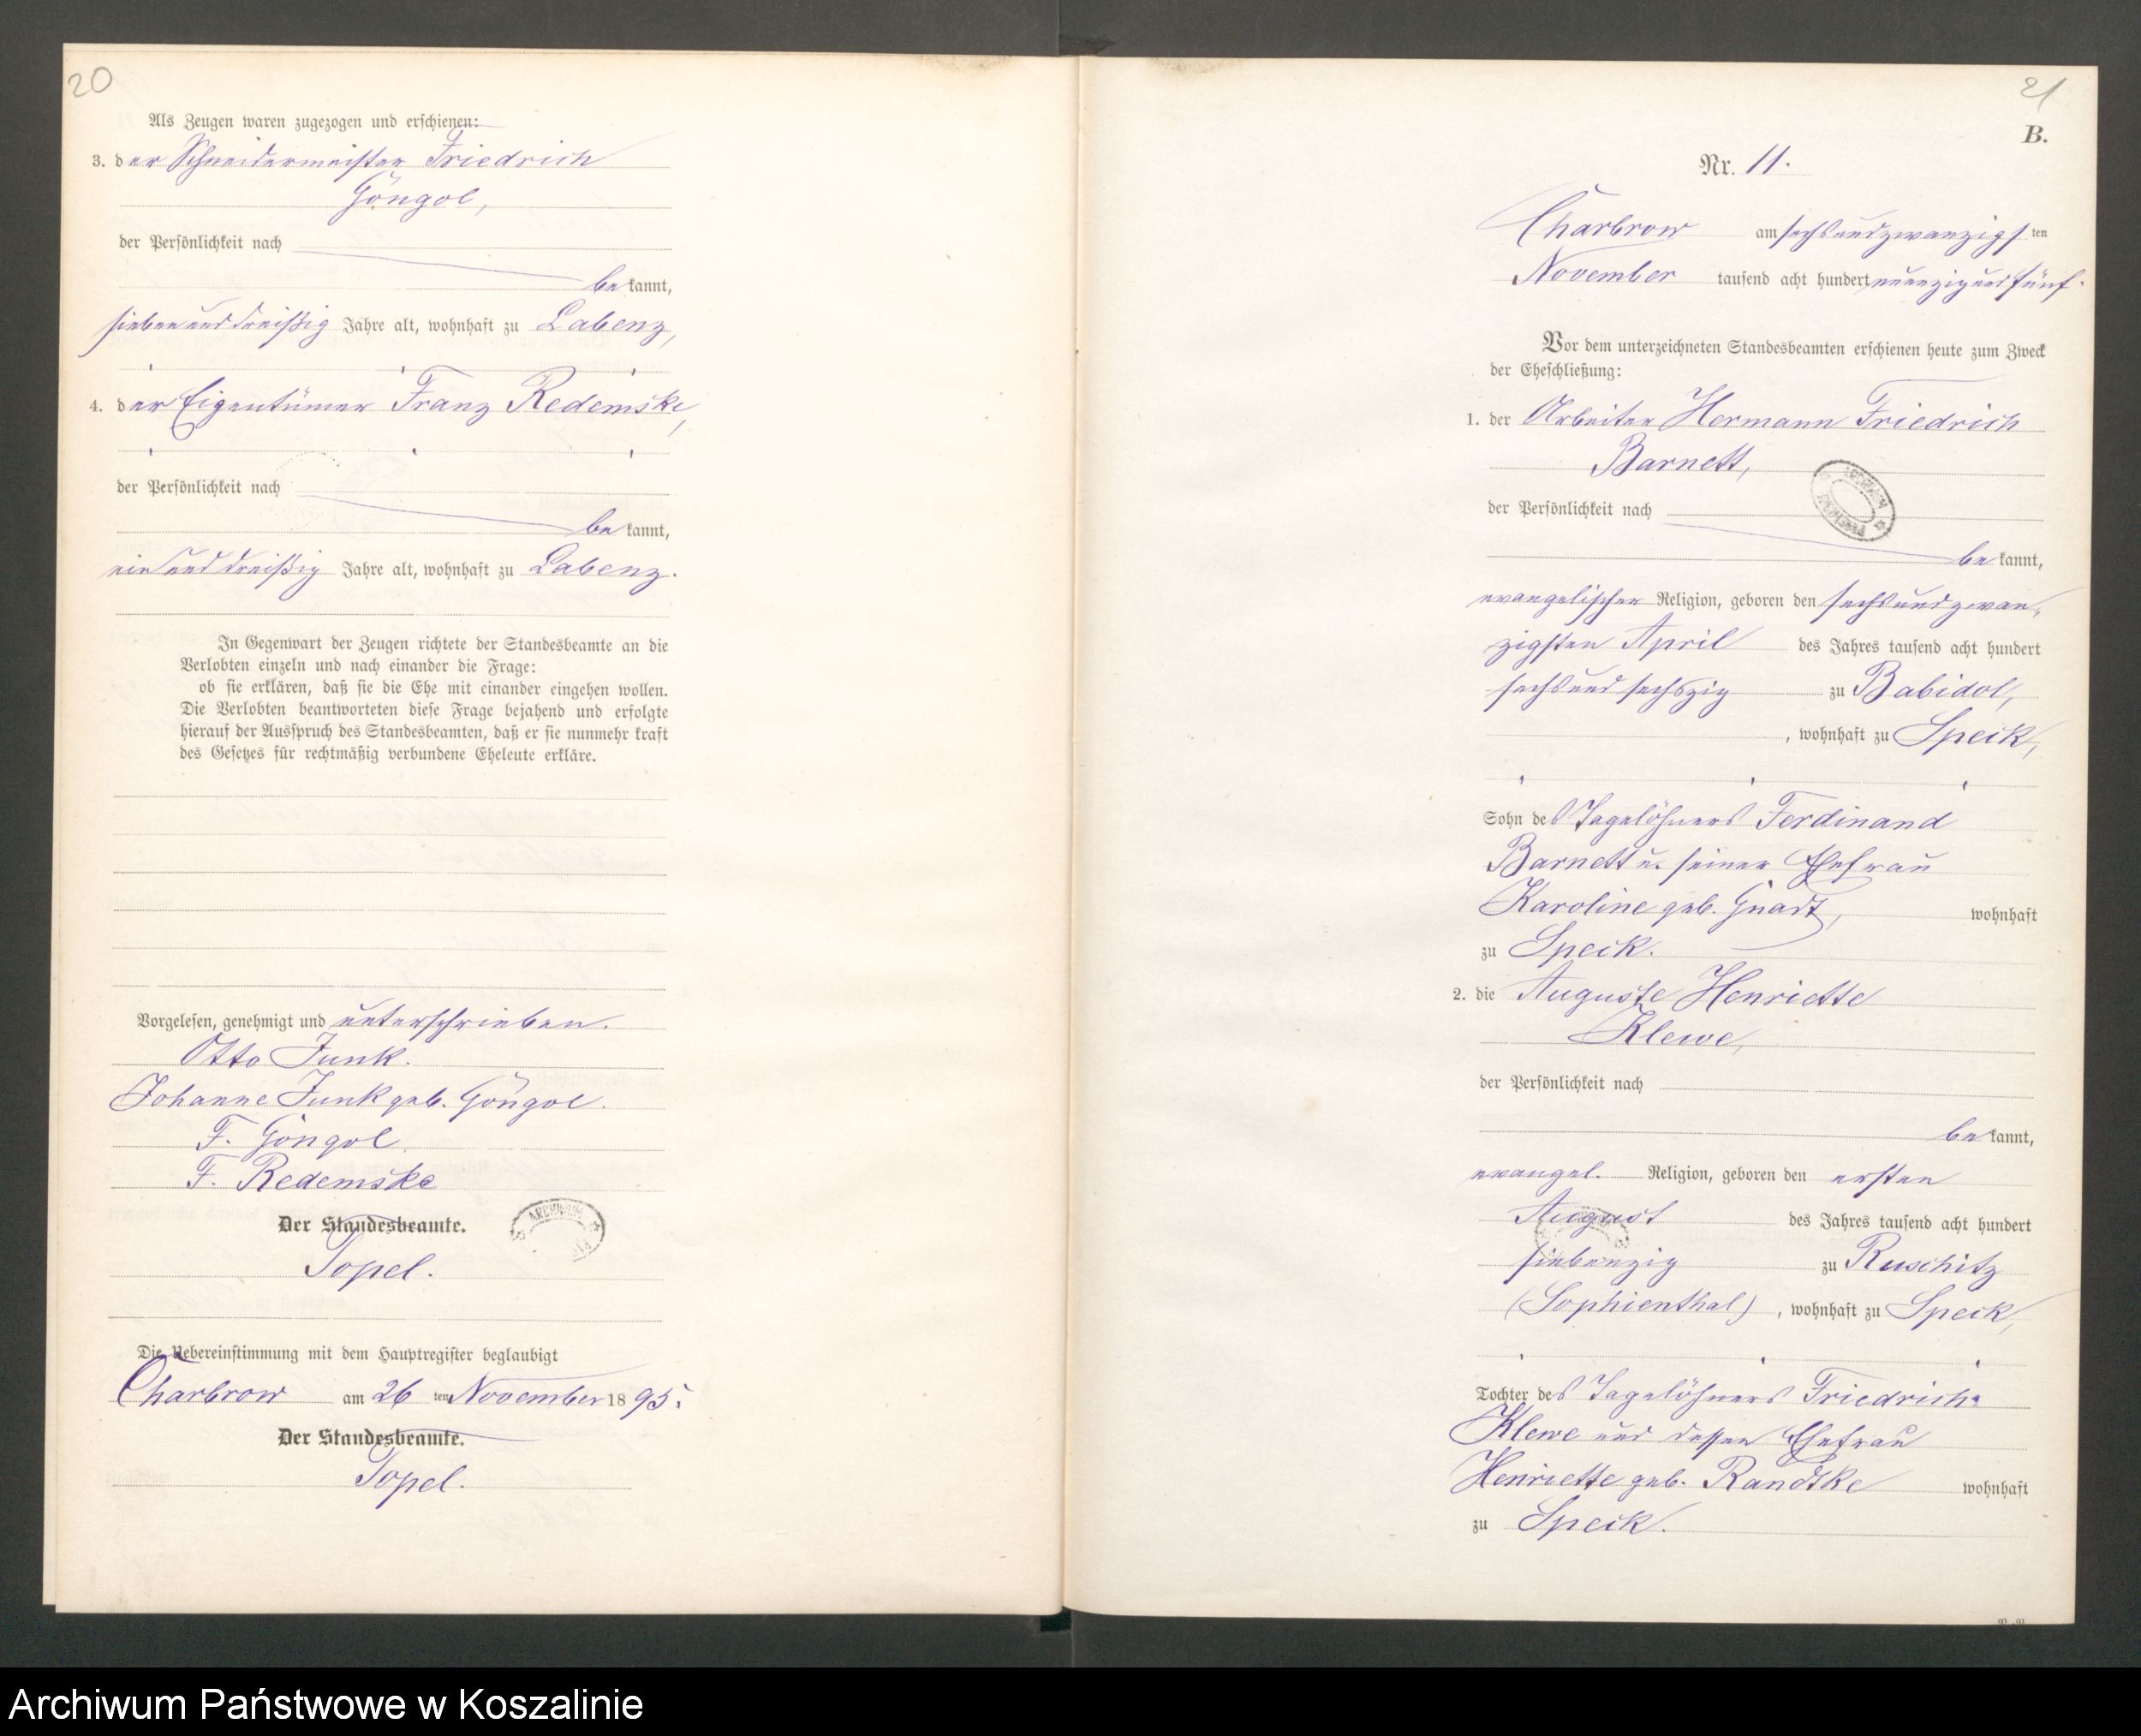 20
Als Zeugen waren zugezogen und erschienen:
3. der Schneidermeister Friedrich
Göngol,
der Persönlichkeit nach
bekannt,
siebenunddreißig Jahre alt, wohnhaft zu Labenz,
4. der Eigentümer Franz Redemske,
der Persönlichkeit nach
bekannt,
einunddreißig Jahre alt, wohnhaft zu Labenz.
In Gegenwart der Zeugen richtete der Standesbeamte an die
Verlobten einzeln und nach einander die Frage:
ob sie erklären, daß sie die Ehe mit einander eingehen wollen.
Die Verlobten beantworteten diese Frage bejahend und erfolgte
hierauf der Ausspruch des Standesbeamten, daß er sie nunmehr kraft
des Gesetzes für rechtmäßig verbundene Eheleute erkläre.
Vorgelesen, genehmigt und unterschrieben.
Otto Funk.
Johanne Funk geb. Göngol.
F. Göngol
F. Redemske
Der Standesbeamte.
ARCHIWUM
Topel.
Die Uebereinstimmung mit dem Hauptregister beglaubigt
Charbrow am 26 ten November 1895.
Der Standesbeamte.
Topel.
21
B.
Nr. 11.
Charbrow am sechsundzwanzigsten
November tausend acht hundert neunzig und fünf.
Vor dem unterzeichneten Standesbeamten erschienen heute zum Zweck
der Eheschließung:
1. der Arbeiter Hermann Friedrich
Barnett,
der Persönlichkeit nach
bekannt,
evangelischer Religion, geboren den sechsundzwan-
zigsten April des Jahres tausend acht hundert
sechsundsechszig zu Babidol,
, wohnhaft zu Speck,
Sohn des Tagelöhners Ferdinand
Barnett u. seiner Ehefrau
Karoline geb. Gnadt, wohnhaft
zu Speck.
2. die Auguste Henriette
Klewe,
der Persönlichkeit nach
bekannt,
evangel. Religion, geboren den ersten
August des Jahres tausend acht hundert
siebenzig zu Ruschitz
(Sophienthal), wohnhaft zu Speck,
Tochter des Tagelöhners Friedrich
Klewe und dessen Ehefrau
Henriette geb. Randtke wohnhaft
zu Speck.
Archiwum Państwowe w Koszalinie